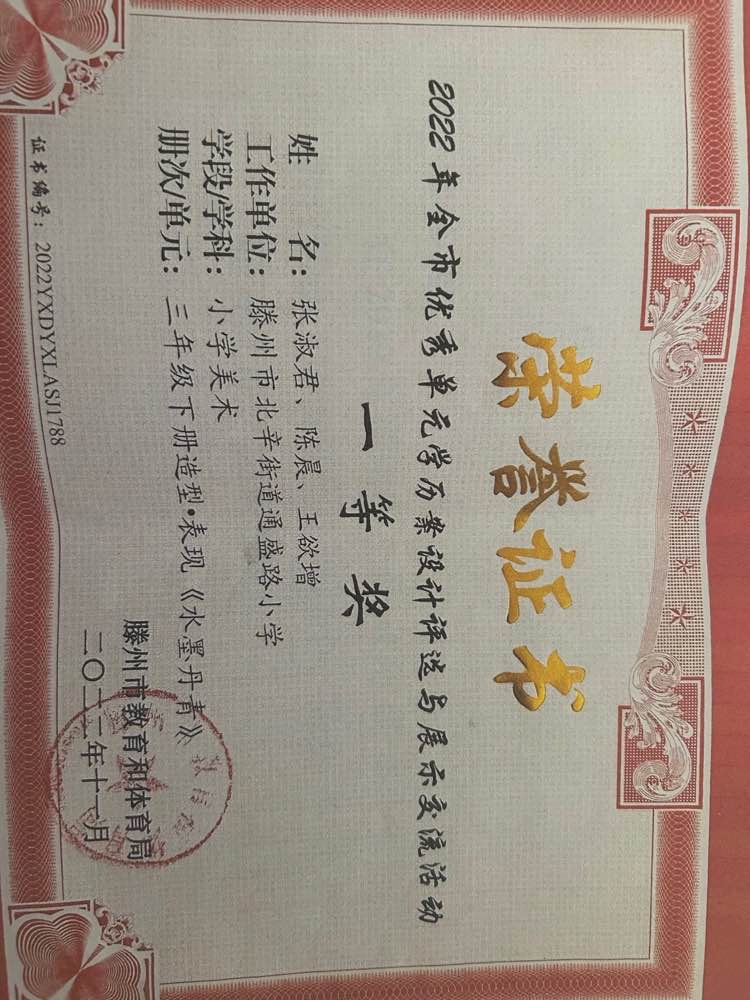 荣誉证书
2022年全市优秀单元学历案设计评选与展示交流活动
一等奖
姓 名：张淑君、陈晨、王欲增
工作单位：滕州市北辛街道通盛路小学
学段/学科：小学美术
册次/单元：三年级下册造型•表现《水墨丹青》
滕州市教育和体育局
二〇二二年十一月
证书编号：2022YXDYXLASJ1788